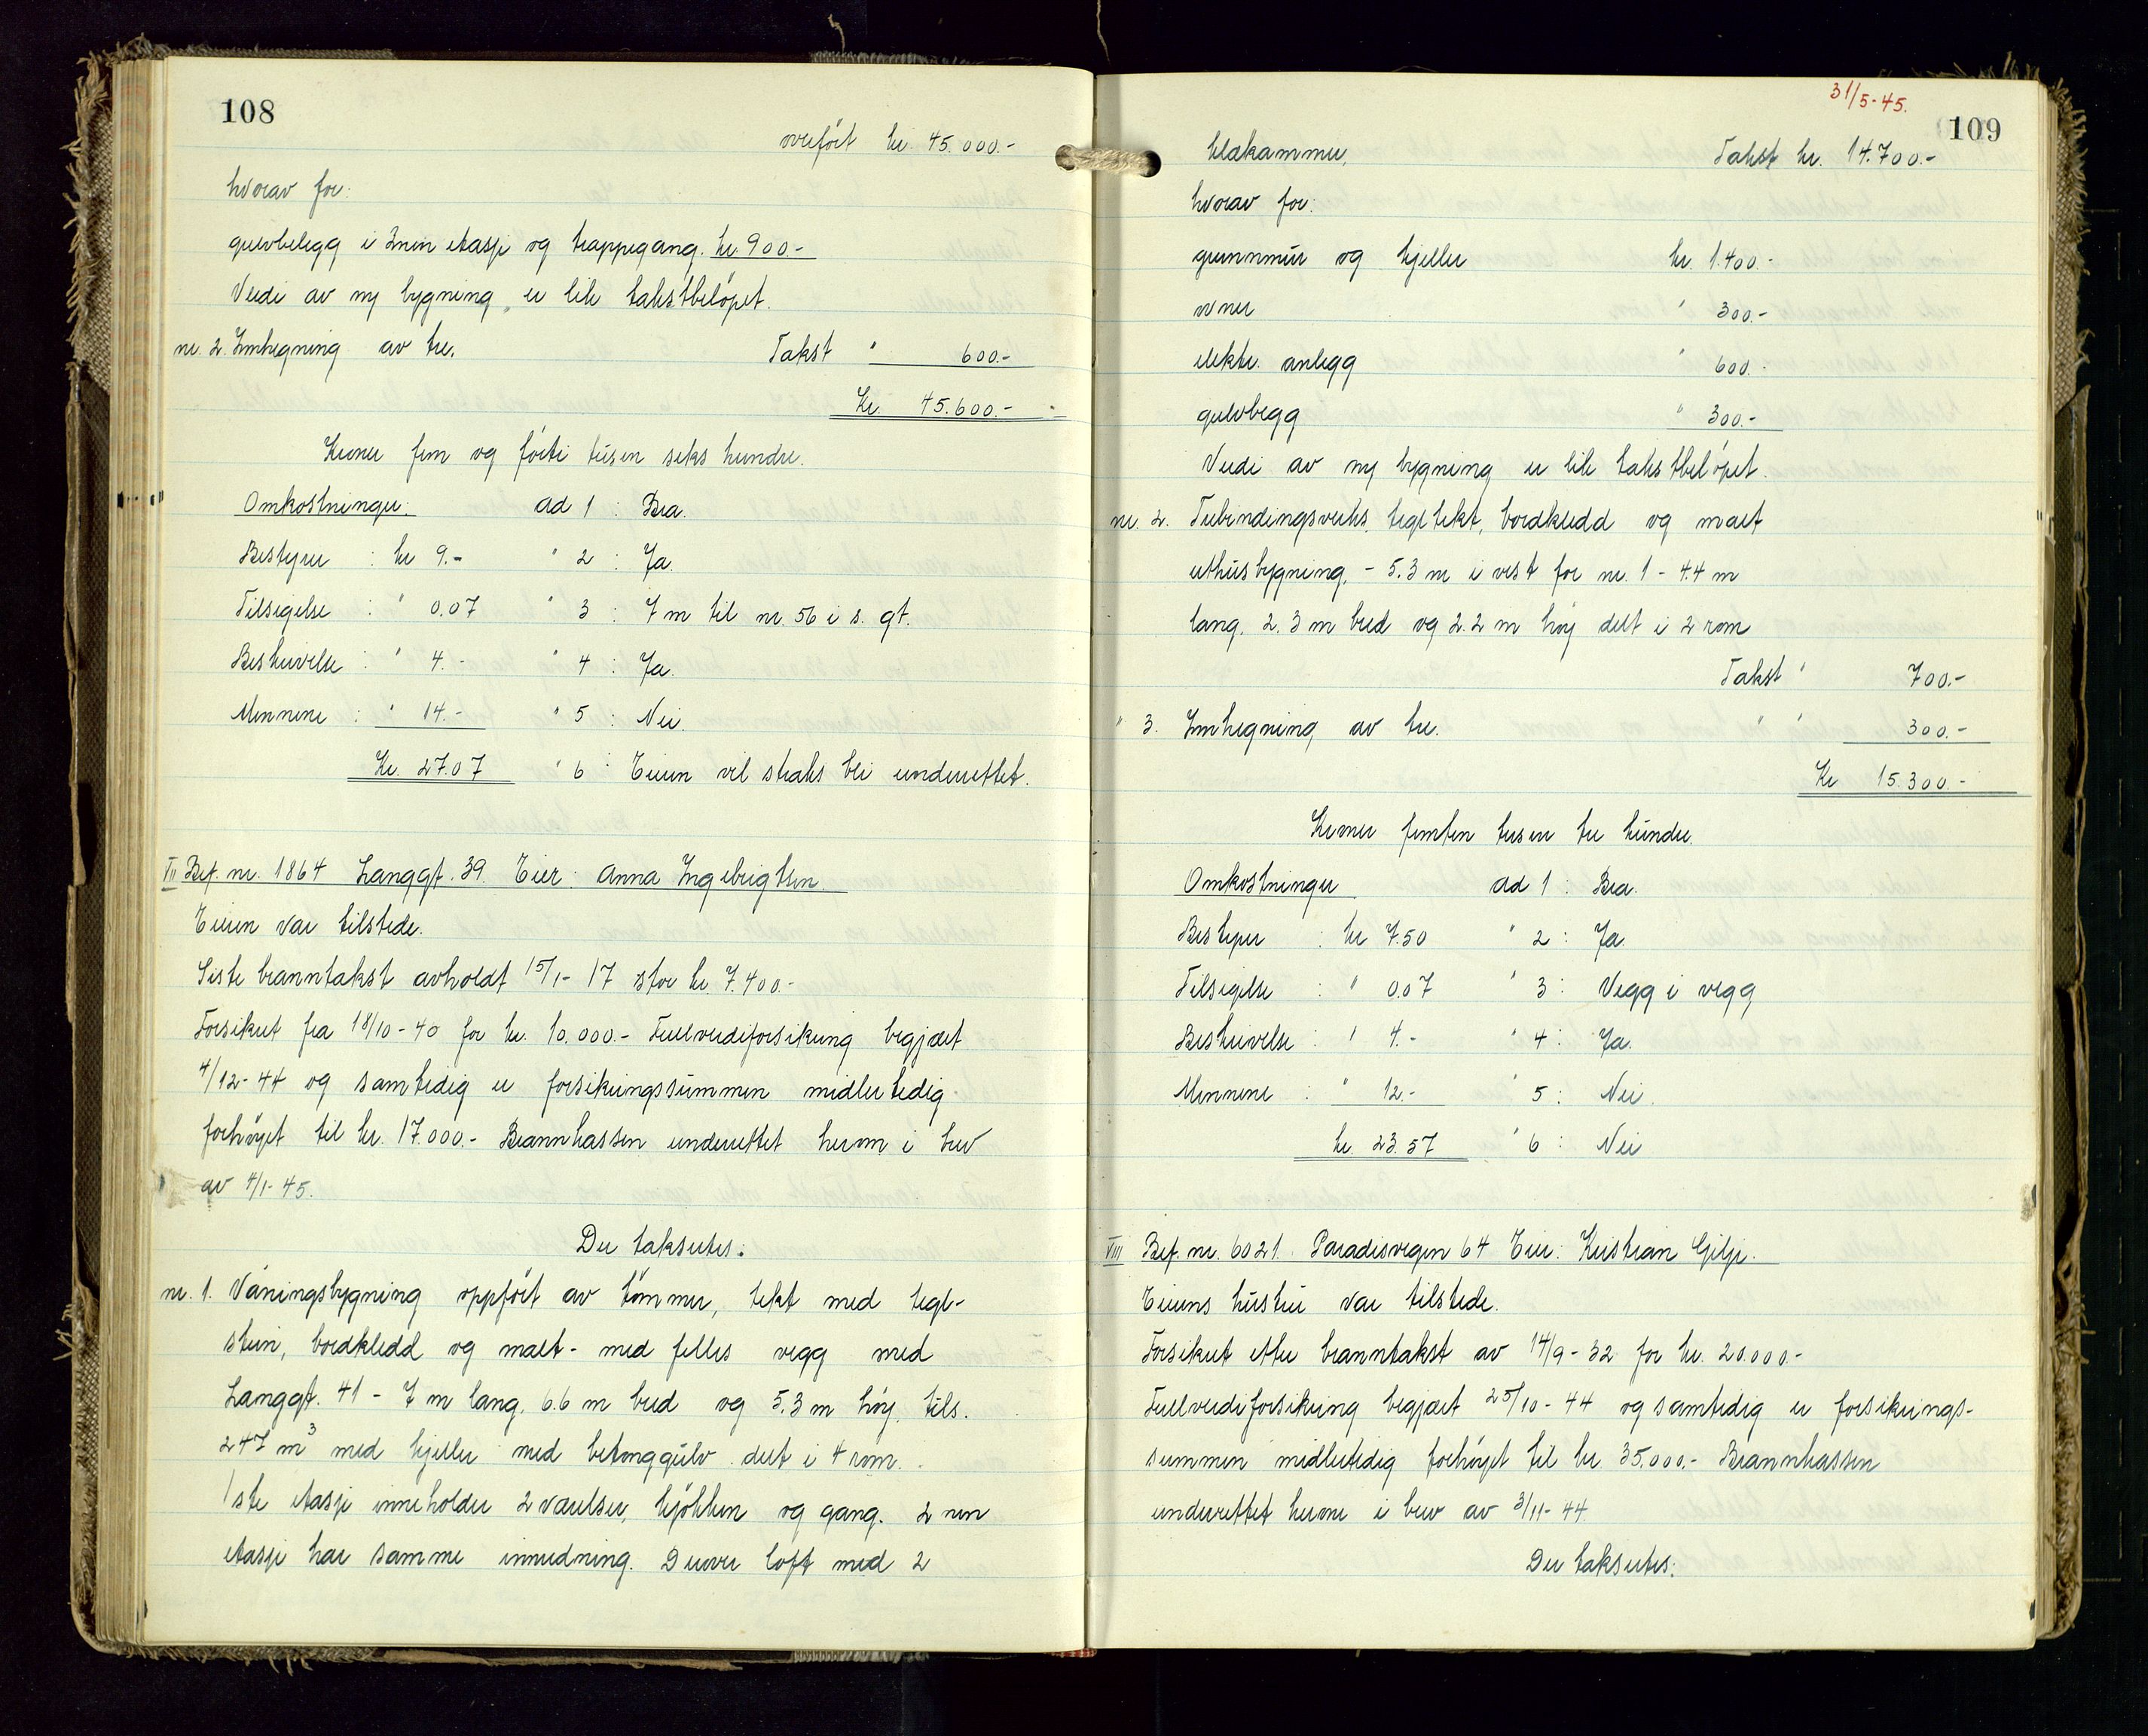 108
overført kr. 45.000.-
hvorav for:
gulvbelegg i 2nen etasje og trappegang. kr. 900.-
Verdi av ny bygning er lik takstbeløpet.
nr. 2. Innhegning av tre. Takst " 600.-
Kr. 45.600.-
Kroner fem og førti tusen seks hundre.
Omkostninger: ad 1 : Bra.
Bestyrer : kr 9.- " 2 : Ja.
Tilsigelse : " 0.07 " 3 : 7 m til nr. 56 i s. gt.
Beskrivelse : " 4.- " 4 : Ja.
Mennene : " 14.- " 5 : Nei.
Kr. 27.07 " 6 : Eieren vil straks bli underrettet.
VII Bef. nr. 1864 Langgt. 39. Eier: Anna Ingebrigtsen.
Eieren var tilstede.
Siste branntakst avholdt 15/1-17 stor kr. 7.400.-
Forsikret fra 18/10-40 for kr. 10.000.- Fullverdiforsikring begjært
4/12-44 og samtidig er forsikringssummen midlertidig
forhøyet til kr. 17.000.- Brannkassen underrettet herom i brev
av 4/1-45.
Der takseres:
nr. 1. Våningsbygning oppført av tømmer, tekt med tegl-
stein, bordkledd og malt - med felles vegg med
Langgt. 41 - 7 m lang, 6.6 m bred og 5.3 m høy, tils.
247 m³ med kjeller med betonggulv delt i 4 rom.
1ste etasje inneholder 2 værelser, kjøkken og gang. 2nen
etasje har samme innredning. Derover loft med 2
31/5-45.
109
klekammer, Takst kr. 14.700.-
hvorav for:
grunnmur og kjeller kr. 1.400.-
ovner " 300.-
elektr. anlegg " 600.-
gulvbegg " 300.-
Verdi av ny bygning er lik takstbeløpet.
nr. 2. Trebindingsverks, tegltekt, bordkledd og malt
uthusbygning, - 5.3 m i vest for nr. 1 - 4.4 m
lang, 2.3 m bred og 2.2 m høy delt i 2 rom
Takst " 700.-
" 3. Innhegning av tre. " " 300.-
Kr 15.300.-
Kroner femten tusen tre hundre.
Omkostninger ad 1 : Bra.
Bestyrer : kr 7.50 " 2 : Ja.
Tilsigelse : " 0.07 " 3 : Vegg i vegg
Beskrivelse : " 4.- " 4 : Ja.
Mennene : " 12.- " 5 : Nei.
kr. 23.57 " 6 : Nei
VIII Bef. nr. 6021. Paradisvegen 64 Eier: Kristian Gilje.
Eierens hustru var tilstede.
Forsikret etter branntakst av 14/9-32 for kr. 20.000.-
Fullverdiforsikring begjært 25/10-44 og samtidig er forsikrings-
summen midlertidig forhøyet til kr 35.000.- Brannkassen
underrettet herom i brev av 3/11-44.
Der takseres: